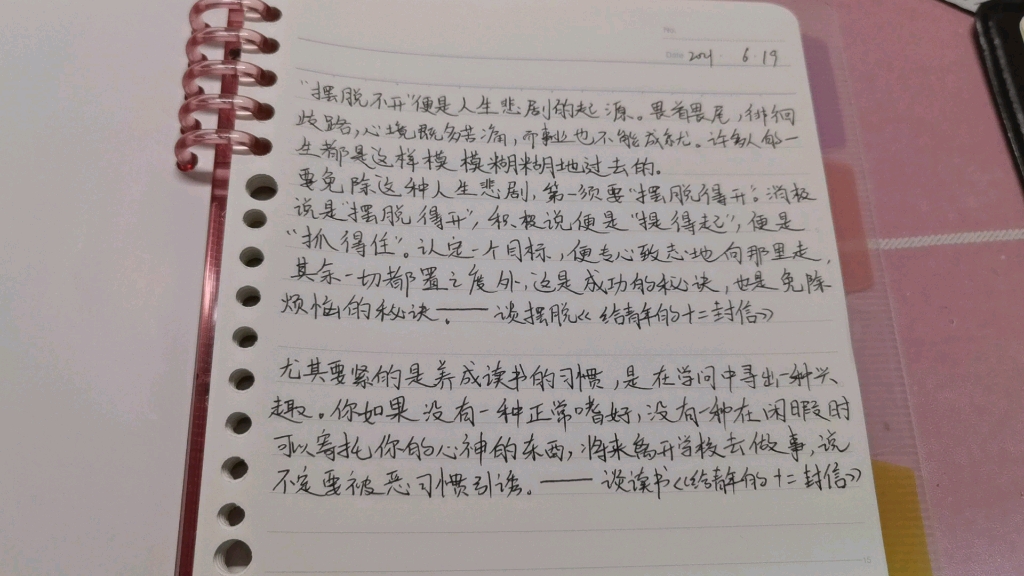 No.
Date 2021 6.19
"摆脱不开"便是人生悲剧的起源。畏首畏尾,徘徊
歧路,心境既多苦痛,而事业也不能成就。许多人的一
生都是这样模模糊糊地过去的。
要免除这种人生悲剧,第一须要"摆脱得开"。消极
说是"摆脱得开",积极说便是"提得起",便是
"抓得住"。认定一个目标,便专心致志地向那里走,
其余一切都置之度外,这是成功的秘诀,也是免除
烦恼的秘诀。——谈摆脱《给青年的十二封信》
尤其要紧的是养成读书的习惯,是在学问中寻出一种兴
趣。你如果没有一种正常嗜好,没有一种在闲暇时
可以寄托你的心神的东西,将来离开学校去做事,说
不定要被恶习惯引诱。——谈读书《给青年的十二封信》